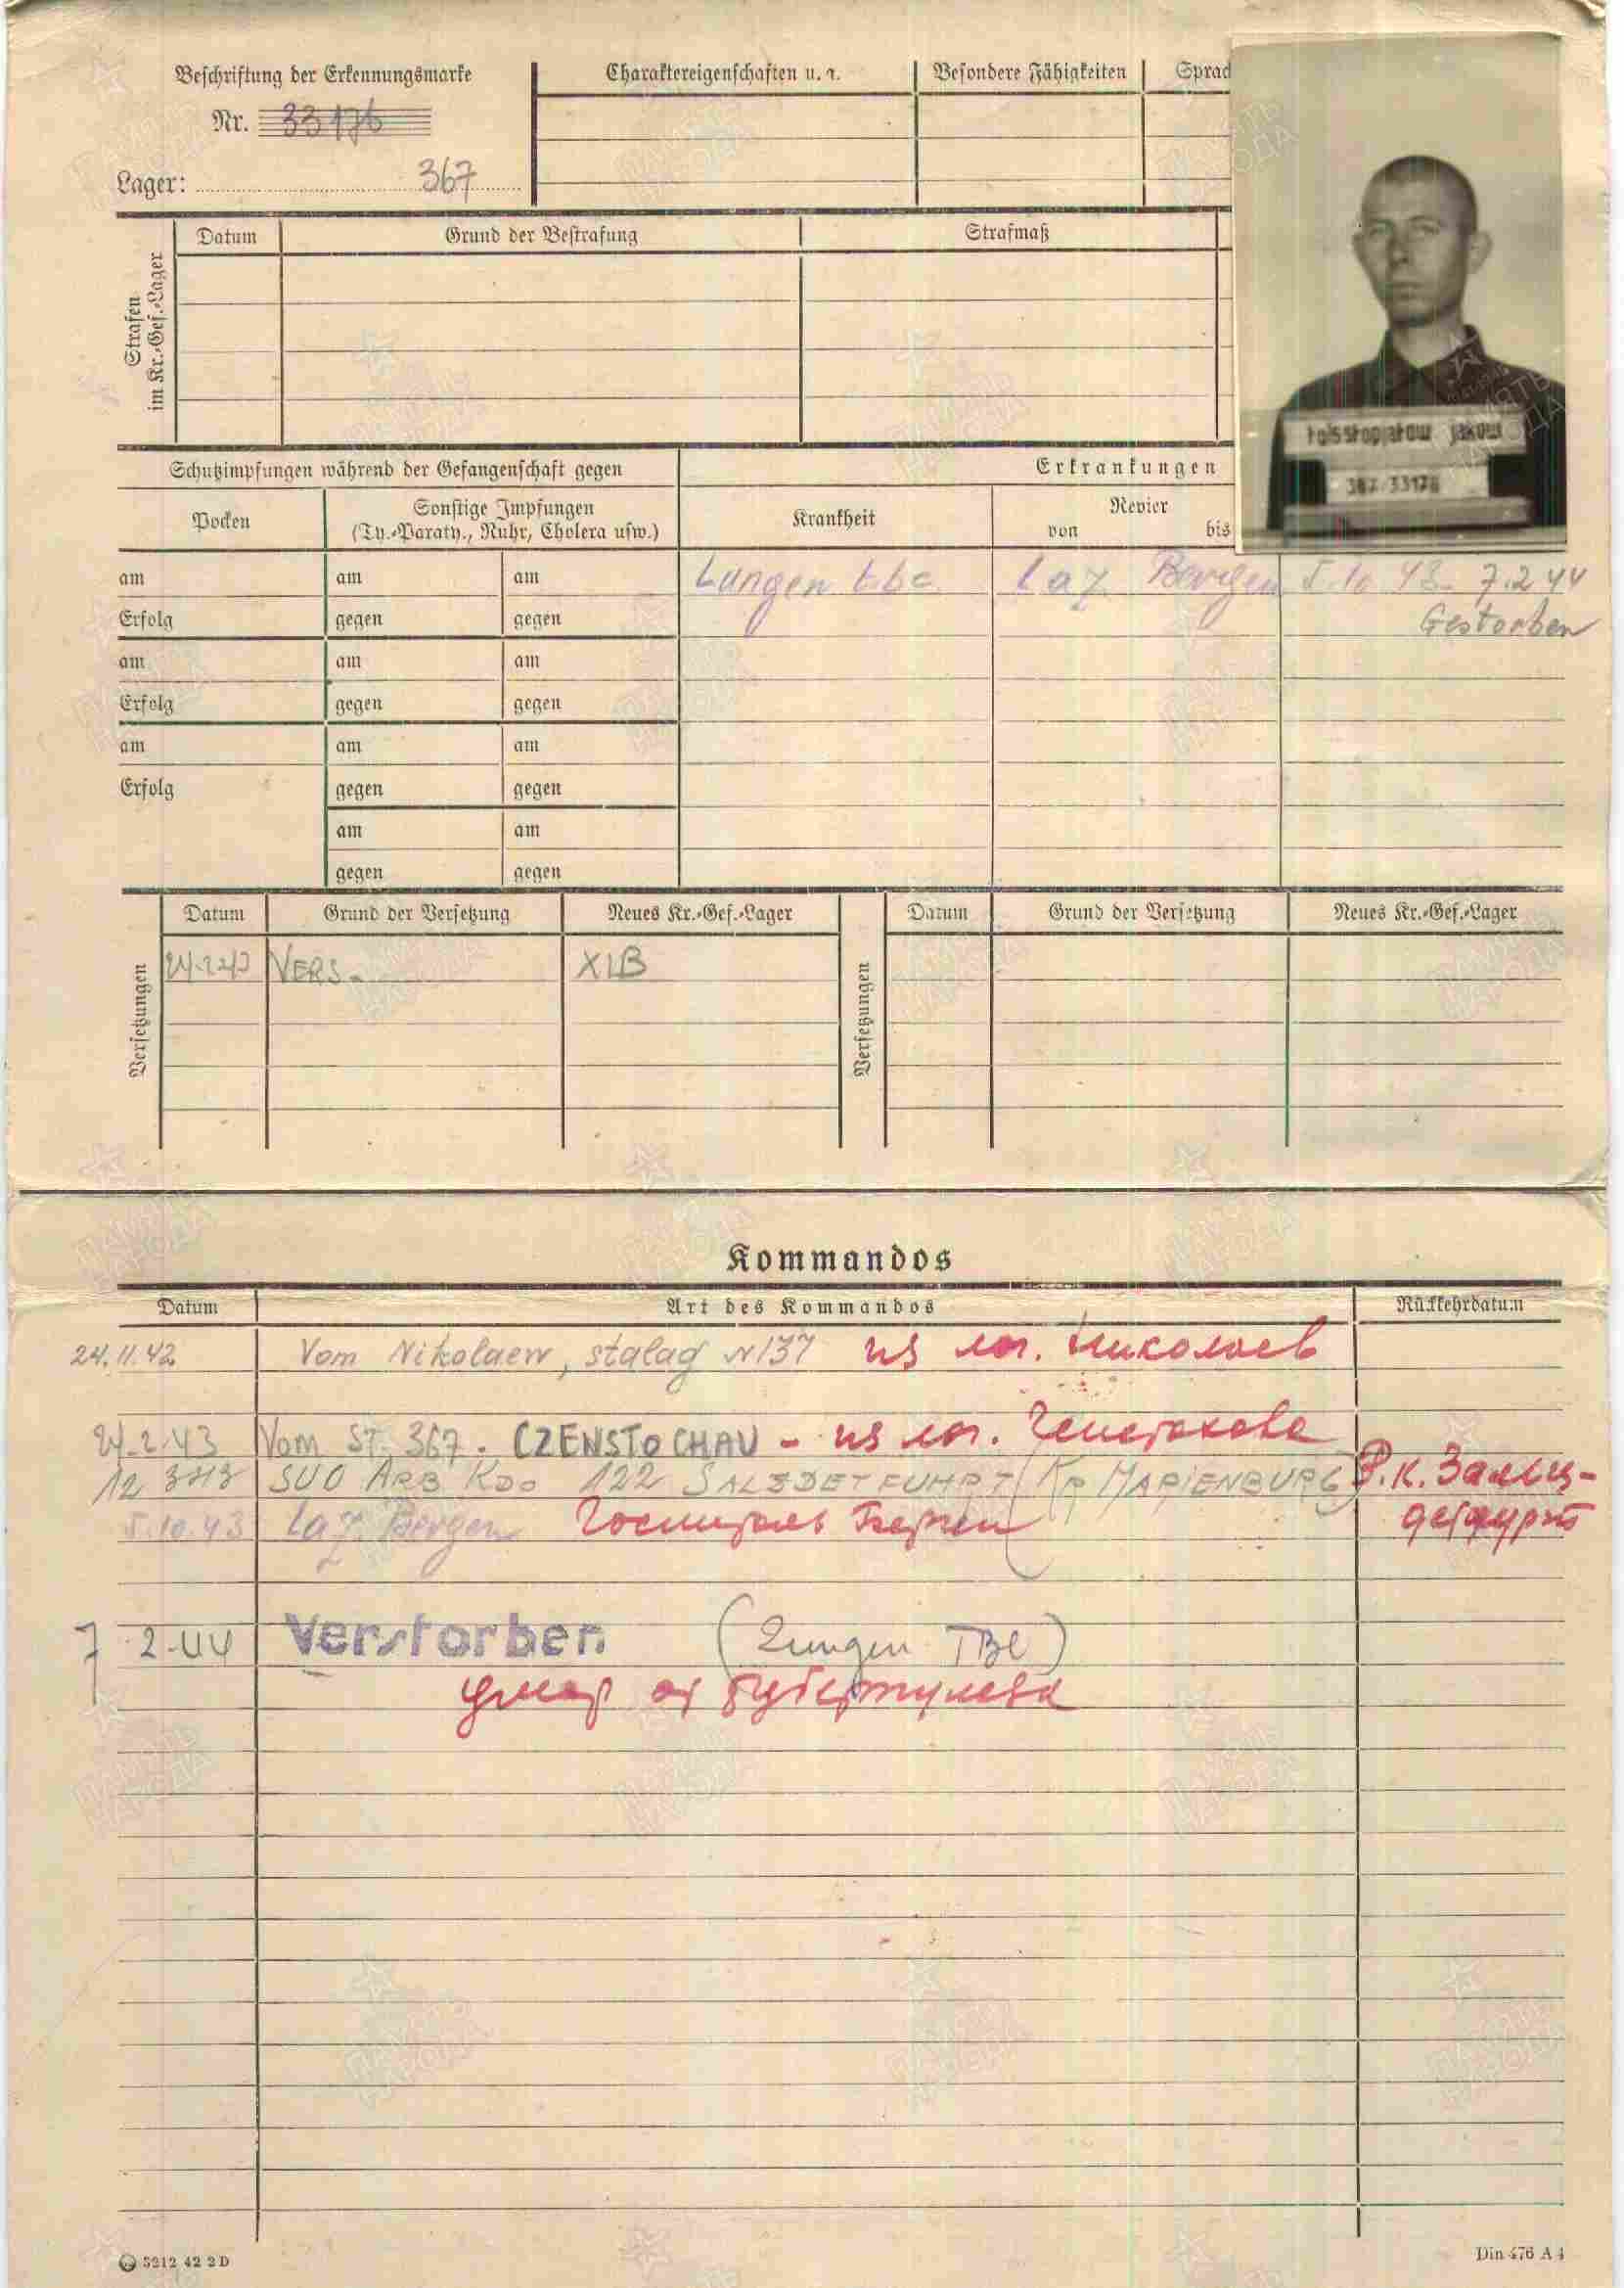 Beschriftung der Erkennungsmarke
Nr. 33176
Lager: 367
Charaktereigenschaften u. a.
Besondere Fähigkeiten
Sprac
Datum
Grund der Bestrafung
Strafmaß
Strafen
im Kr.-Gef.-Lager
tolsstopjatow jakow
367 33176
Schutzimpfungen während der Gefangenschaft gegen
Erkrankungen
Pocken
Sonstige Impfungen
(Ty.-Paraty., Ruhr, Cholera usw.)
Krankheit
Revier
von bis
am am am Lungen t.b.c. Laz. Bergen 5.10.43. 7.2 44
Erfolg gegen gegen Gestorben
am am am
Erfolg gegen gegen
am am am
Erfolg gegen gegen
am am
gegen gegen
Versetzungen
Datum Grund der Versetzung Neues Kr.-Gef.-Lager
VERS. XIB
Versetzungen
Datum Grund der Versetzung Neues Kr.-Gef.-Lager
Kommandos
Datum Art des Kommandos Rückkehrdatum
24.11.42 Vom Nikolaew, stalag N137 из лаг. Николаев
24.2.43 Vom ST. 367. CZENSTOCHAU - из лаг. Ченстохова
12 3 43 ARB KDO 122 SALZDETFUHRT (KR MARIENBURG) Р.к. Зальц-
5.10.43 Laz. Bergen Госпиталь Берген детфурт
7.2.44 Verstorben (Lungen TBC)
умер от туберкулеза
5212 42 2D
Din 476 A 4
ПАМЯТЬ НАРОДА